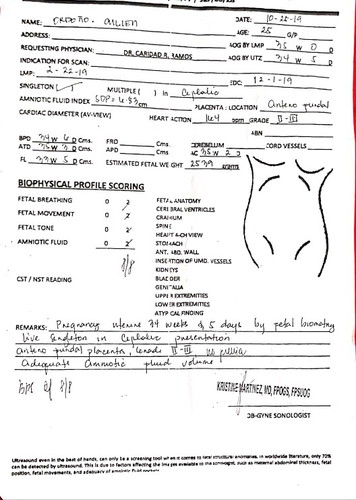 NAME: AILLEN DATE: 10-25-19
ADDRESS: AGE: 25 G/P
REQUESTING PHYSICIAN: DR. CARIDAD R. RAMOS AOG BY LMP 35 W 0 D
INDICATION FOR SCAN: AOG BY UTZ 34 W 5 D
LMP: 2-22-19 EDC: 12-1-19
SINGLETON MULTIPLE ( ) In Cephalic
AMNIOTIC FLUID INDEX SDP= 4.83cm PLACENTA: LOCATION Antero fundal
CARDIAC DIAMETER (AV-VIEW) HEART ACTION 164 ppm GRADE II-III
ABN
BPD 34 W 6 D Cms. FRD Cms. CEREBELLUM CORD VESSELS
ATD 35 W 3 D Cms. APD Cms. 35 W 2 D
FL 33 W 5 D Cms. ESTIMATED FETAL WEIGHT 2539 grams
BIOPHYSICAL PROFILE SCORING
FETAL BREATHING 0 2
FETAL MOVEMENT 0 2
FETAL TONE 0 2
AMNIOTIC FLUID 0 2
8/8
CST / NST READING
FETAL ANATOMY
CEREBRAL VENTRICLES
CRANIUM
SPINE
HEART 4-CH VIEW
STOMACH
ANT. ABD. WALL
INSERTION OF UMB. VESSELS
KIDNEYS
BLADDER
GENITALIA
UPPER EXTREMITIES
LOWER EXTREMITIES
ATYPICAL FINDING
REMARKS: Pregnancy uterine 34 weeks & 5 days by fetal biometry
live singleton in Cephalic presentation
antero fundal placenta, Grade II-III, no previa
Adequate Amniotic fluid volume
BPS of 8/8
KRISTINE MARTINEZ, MD, FPOGS, FPSUOG
OB-GYNE SONOLOGIST
Ultrasound even in the best of hands, can only be a screening tool when it comes to fetal structural anomalies. In worldwide literature, only 70%
can be detected by ultrasound. This is due to factors affecting the images available to the sonologist, such as maternal abdominal thickness, fetal
position, fetal movements, and adequacy of amniotic fluid